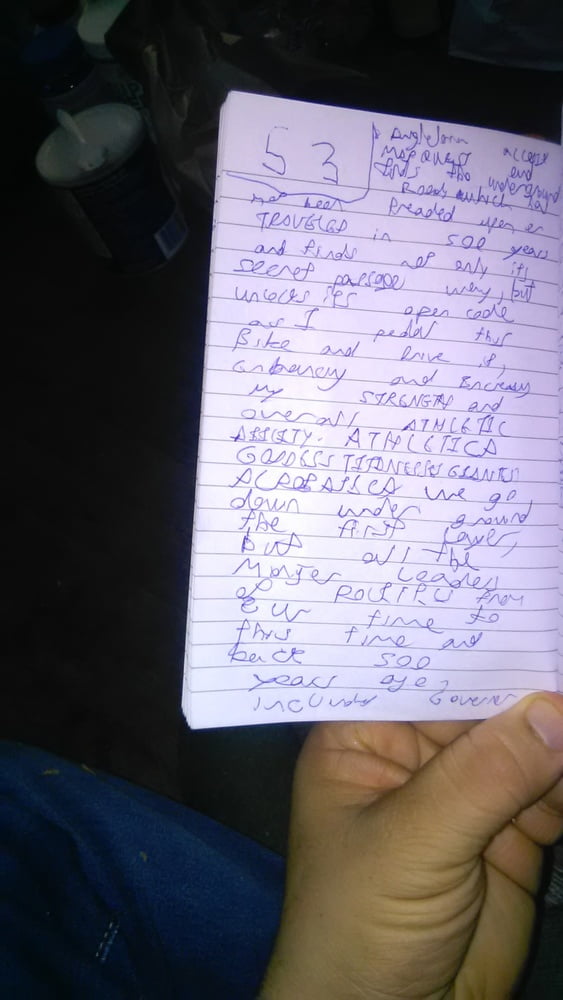 53
access
MAPQUEST and
finds the underground
Roads which had
not been Treaded upon or
TRAVELED in 500 years
and finds not only its
secret passage way, but
unlocks its open code
as I pedal this
Bike and Drive it,
and Increasing
my STRENGTH and
overall ATHLETIC
ABILITY. ATHLETICA
GODDESS TITANESSES GIANTS
we go
down under ground
the first Layer,
but all the
Major Leaders
of from
our time to
this time and
back 500
years ago,